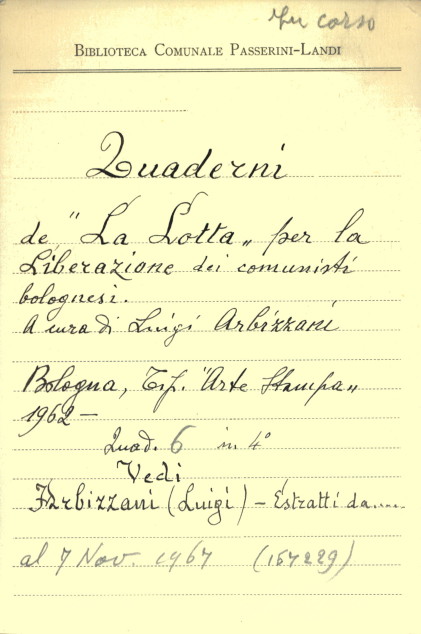 In corso
BIBLIOTECA COMUNALE PASSERINI-LANDI
Quaderni
de "La Lotta„ per la
Liberazione dei comunisti
bolognesi.
A cura di Luigi Arbizzani
Bologna, Tip. "Arte Stampa„
1962 —
Quad. 6 in 4°
Vedi
Arbizzani (Luigi) — Estratti da.....
al 7 Nov. 1967 (157229)